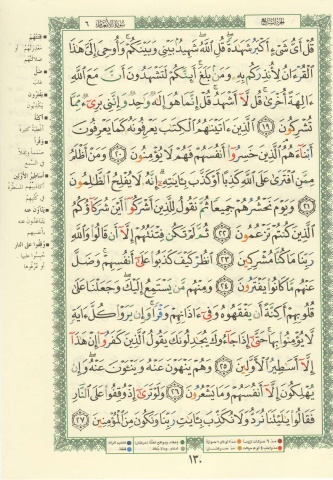 الجزء السابع
سورة الأنعام ٦
قُلْ أَىُّ شَىْءٍ أَكْبَرُ شَهَٰدَةً ۖ قُلِ ٱللَّهُ ۖ شَهِيدٌۢ بَيْنِى وَبَيْنَكُمْ ۚ وَأُوحِىَ إِلَىَّ هَٰذَا
ٱلْقُرْءَانُ لِأُنذِرَكُم بِهِۦ وَمَنۢ بَلَغَ ۚ أَئِنَّكُمْ لَتَشْهَدُونَ أَنَّ مَعَ ٱللَّهِ
ءَالِهَةً أُخْرَىٰ ۚ قُل لَّآ أَشْهَدُ ۚ قُلْ إِنَّمَا هُوَ إِلَٰهٌ وَٰحِدٌ وَإِنَّنِى بَرِىٓءٌ مِّمَّا
تُشْرِكُونَ ﴿١٩﴾ ٱلَّذِينَ ءَاتَيْنَٰهُمُ ٱلْكِتَٰبَ يَعْرِفُونَهُۥ كَمَا يَعْرِفُونَ
أَبْنَآءَهُمُ ۘ ٱلَّذِينَ خَسِرُوٓا۟ أَنفُسَهُمْ فَهُمْ لَا يُؤْمِنُونَ ﴿٢٠﴾ وَمَنْ أَظْلَمُ
مِمَّنِ ٱفْتَرَىٰ عَلَى ٱللَّهِ كَذِبًا أَوْ كَذَّبَ بِـَٔايَٰتِهِۦٓ ۗ إِنَّهُۥ لَا يُفْلِحُ ٱلظَّٰلِمُونَ
﴿٢١﴾ وَيَوْمَ نَحْشُرُهُمْ جَمِيعًا ثُمَّ نَقُولُ لِلَّذِينَ أَشْرَكُوٓا۟ أَيْنَ شُرَكَآؤُكُمُ
ٱلَّذِينَ كُنتُمْ تَزْعُمُونَ ﴿٢٢﴾ ثُمَّ لَمْ تَكُن فِتْنَتُهُمْ إِلَّآ أَن قَالُوا۟ وَٱللَّهِ
رَبِّنَا مَا كُنَّا مُشْرِكِينَ ﴿٢٣﴾ ٱنظُرْ كَيْفَ كَذَبُوا۟ عَلَىٰٓ أَنفُسِهِمْ ۚ وَضَلَّ
عَنْهُم مَّا كَانُوا۟ يَفْتَرُونَ ﴿٢٤﴾ وَمِنْهُم مَّن يَسْتَمِعُ إِلَيْكَ ۖ وَجَعَلْنَا عَلَىٰ
قُلُوبِهِمْ أَكِنَّةً أَن يَفْقَهُوهُ وَفِىٓ ءَاذَانِهِمْ وَقْرًا ۚ وَإِن يَرَوْا۟ كُلَّ ءَايَةٍ
لَّا يُؤْمِنُوا۟ بِهَا ۚ حَتَّىٰٓ إِذَا جَآءُوكَ يُجَٰدِلُونَكَ يَقُولُ ٱلَّذِينَ كَفَرُوٓا۟ إِنْ هَٰذَآ
إِلَّآ أَسَٰطِيرُ ٱلْأَوَّلِينَ ﴿٢٥﴾ وَهُمْ يَنْهَوْنَ عَنْهُ وَيَنْـَٔوْنَ عَنْهُ ۖ وَإِن
يُهْلِكُونَ إِلَّآ أَنفُسَهُمْ وَمَا يَشْعُرُونَ ﴿٢٦﴾ وَلَوْ تَرَىٰٓ إِذْ وُقِفُوا۟ عَلَى ٱلنَّارِ
فَقَالُوا۟ يَٰلَيْتَنَا نُرَدُّ وَلَا نُكَذِّبَ بِـَٔايَٰتِ رَبِّنَا وَنَكُونَ مِنَ ٱلْمُؤْمِنِينَ ﴿٢٧﴾
فتنتهم
معذرتهم أو
ضلالتهم
ضل
غاب
يفترون
يكذبون
أكنة
أغطية كثيرة
وقرا
صمما وثقلا
في السمع
أساطير الأولين
أكاذيبهم المسطرة
في كتبهم
ينأون عنه
يتباعدون عنه
بأنفسهم
وقفوا على النار
حبسوا عليها
أو عرفوها
١٣٠